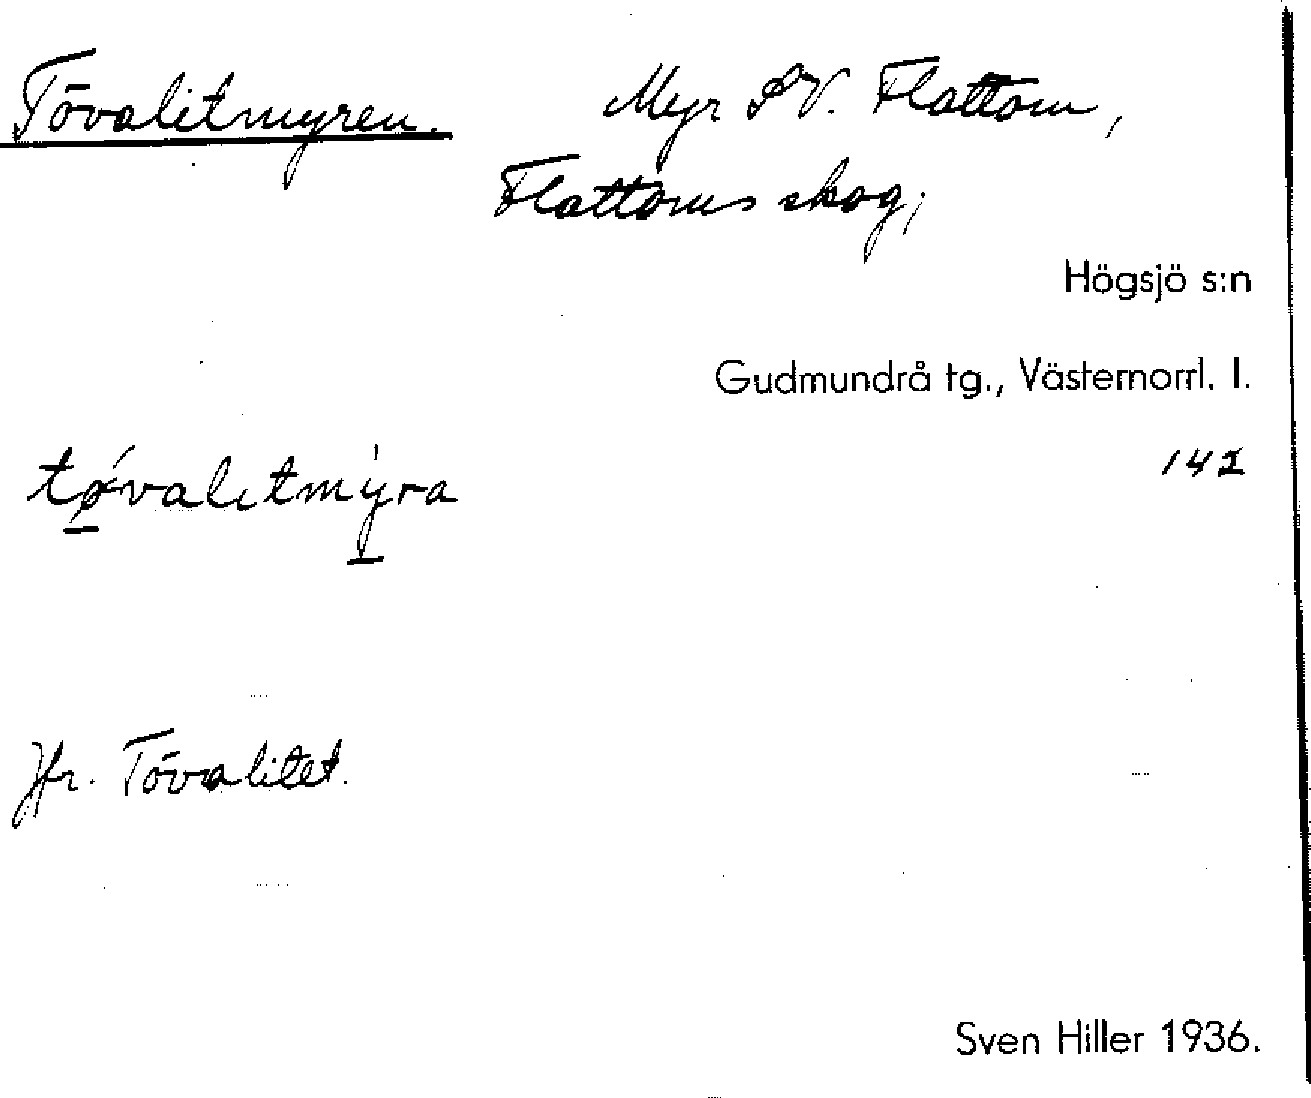 Tövalitmyren. Myr SV. Flattom,
Flattoms skog;
Högsjö s:n
Gudmundrå tg., Västernorrl. l.
tǿvalıtmýra 142
Jfr. Tövalitet.
Sven Hiller 1936.